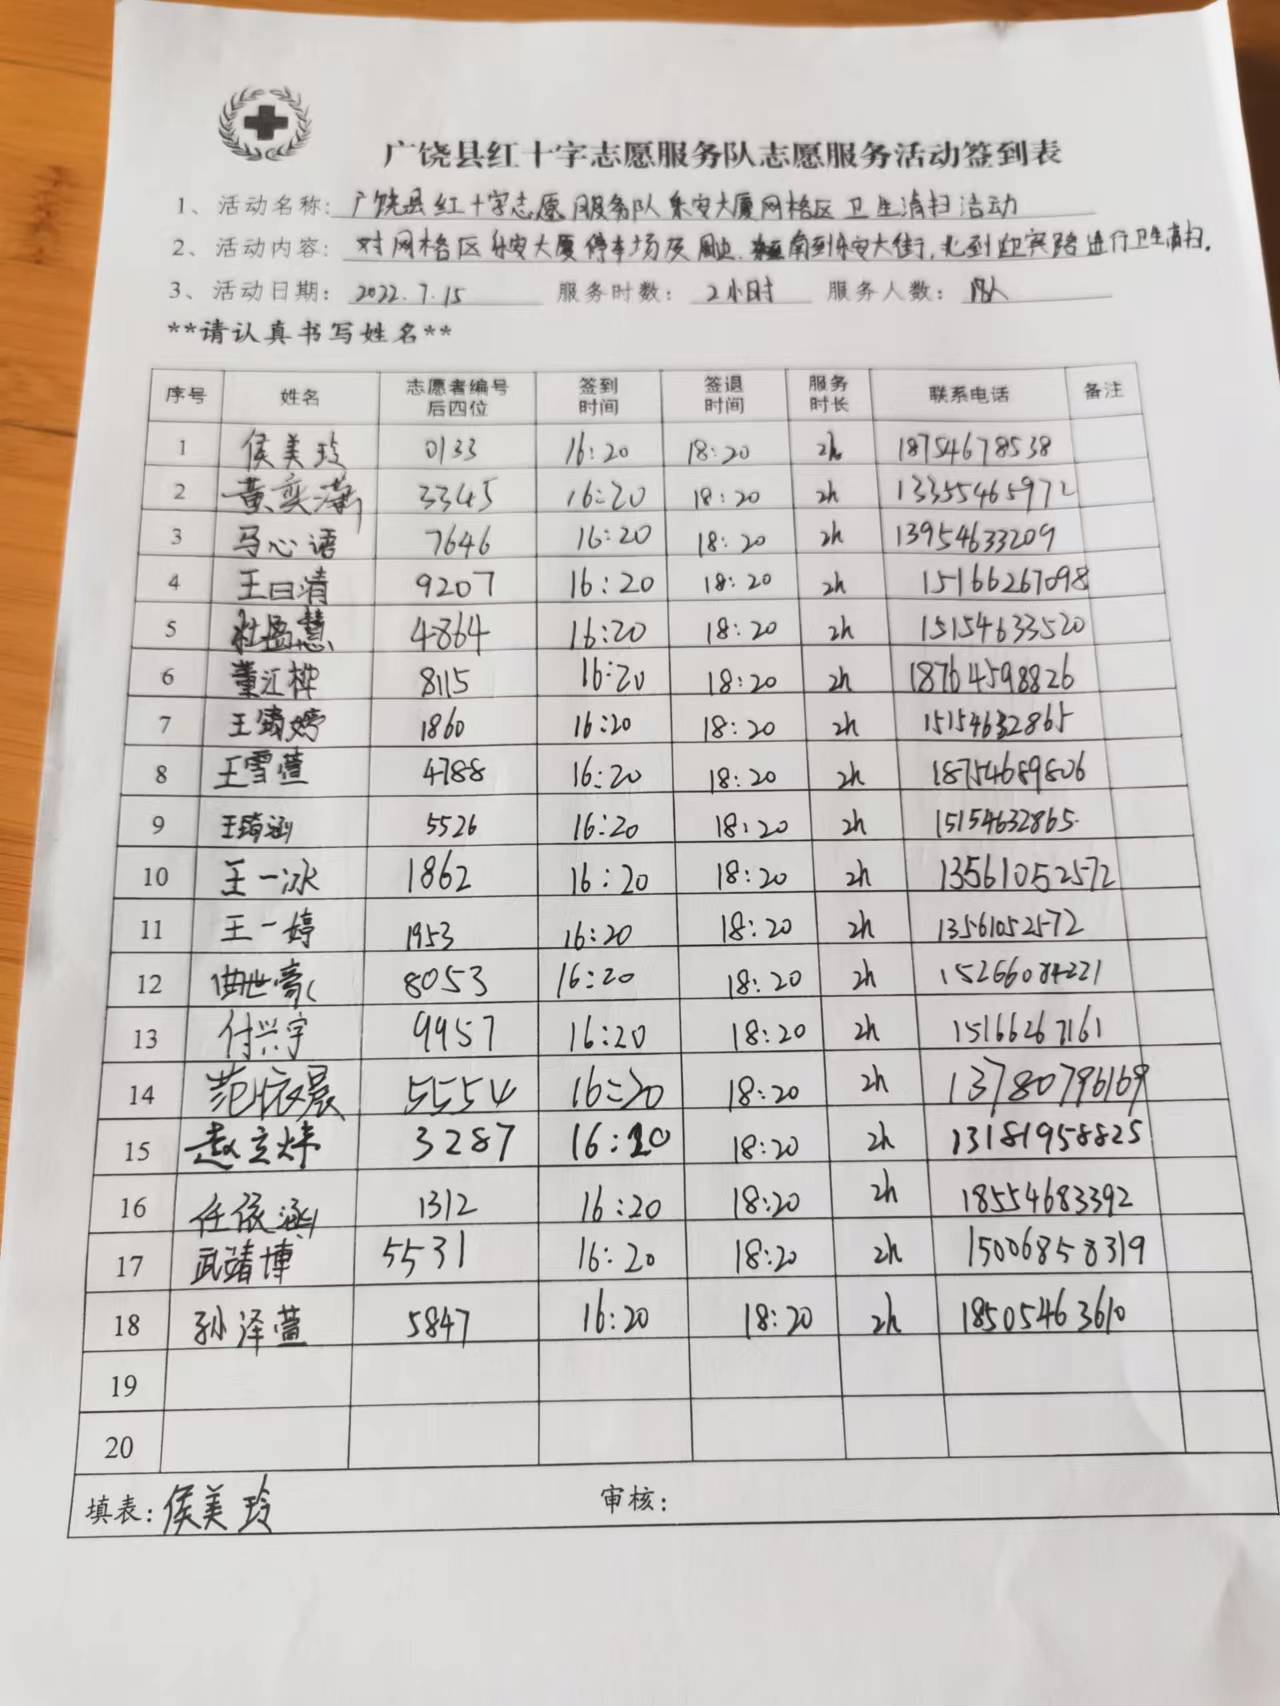 广饶县红十字志愿服务队志愿服务活动签到表
1、活动名称: 广饶县红十字志愿服务队乐安大厦网格区卫生清扫活动
2、活动内容: 对网格区乐安大厦停车场及周边. 南到乐安大街,北到迎宾路进行卫生清扫.
3、活动日期: 2022.7.15 服务时数: 2小时 服务人数: 18人
**请认真书写姓名**
序号 姓名 志愿者编号后四位 签到时间 签退时间 服务时长 联系电话 备注
1 侯美玲 0133 16:20 18:20 2h 18754678538
2 黄奕潇 3345 16:20 18:20 2h 13355465972
3 马心语 7646 16:20 18:20 2h 13954633209
4 王曰清 9207 16:20 18:20 2h 15166267098
5 杜盈慧 4864 16:20 18:20 2h 15154633520
6 董江桦 8115 16:20 18:20 2h 18764598826
7 王婷 1860 16:20 18:20 2h 15154632865
8 王雪萱 4788 16:20 18:20 2h 18754689806
9 王琦涵 5526 16:20 18:20 2h 15154632865
10 王一冰 1862 16:20 18:20 2h 13561052572
11 王一婷 1953 16:20 18:20 2h 13561052572
12 曲世豪 8053 16:20 18:20 2h 15266084221
13 付兴宇 9957 16:20 18:20 2h 15166267161
14 范依晨 5554 16:20 18:20 2h 13780796169
15 赵立炜 3287 16:20 18:20 2h 13181958825
16 任依涵 1312 16:20 18:20 2h 18554683392
17 武靖博 5531 16:20 18:20 2h 15006858319
18 孙泽萱 5847 16:20 18:20 2h 18505463610
19
20
填表: 侯美玲 审核: